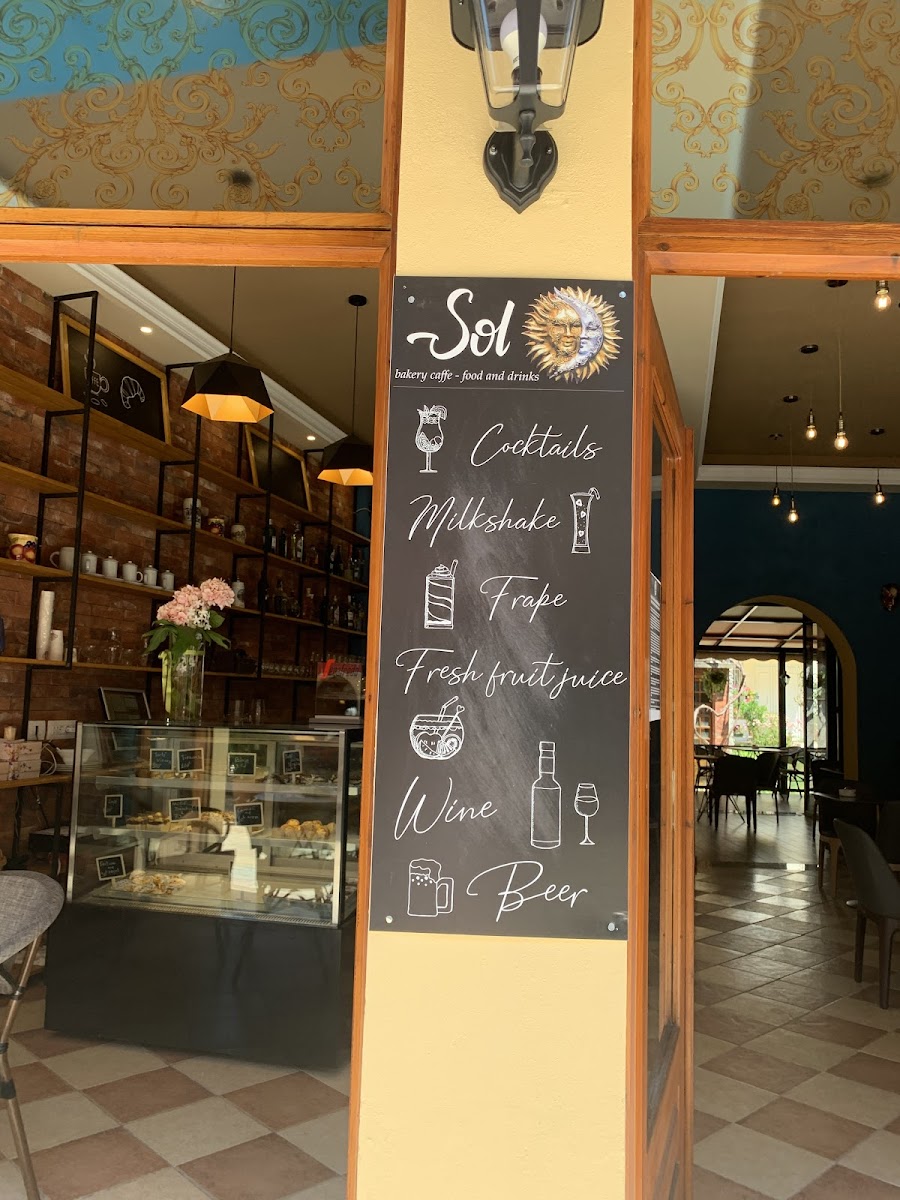 Sol
bakery caffe - food and drinks
Cocktails
Milkshake
Frape
Fresh fruit juice
Wine
Beer